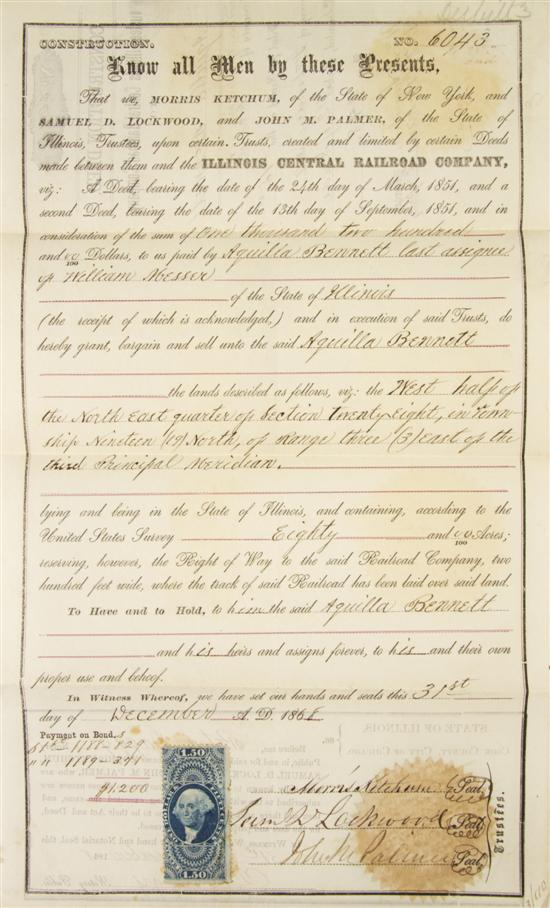 CONSTRUCTION. NO. 6043
Know all Men by these Presents,
That we, MORRIS KETCHUM, of the State of New York, and
SAMUEL D. LOCKWOOD, and JOHN M. PALMER, of the State of
Illinois, Trustees, upon certain Trusts, created and limited by certain Deeds
made between them and the ILLINOIS CENTRAL RAILROAD COMPANY,
viz: A Deed, bearing the date of the 24th day of March, 1851, and a
second Deed, bearing the date of the 13th day of September, 1851, and in
consideration of the sum of One thousand two hundred
and 00/100 Dollars, to us paid by Aquilla Bennett last assignee
of William Messer
of the State of Illinois
(the receipt of which is acknowledged,) and in execution of said Trusts, do
hereby grant, bargain and sell unto the said Aquilla Bennett
the lands described as follows, viz: the West half of
the North East quarter of Section twenty Eight, in town-
ship Nineteen (19) North, of Range three (3) east of the
third Principal Meridian.
lying and being in the State of Illinois, and containing, according to the
United States Survey Eighty and 00/100 Acres;
reserving, however, the Right of Way to the said Railroad Company, two
hundred feet wide, where the track of said Railroad has been laid over said land.
To Have and to Hold, to him the said Aquilla Bennett
and his heirs and assigns forever, to his and their own
proper use and behoof.
In Witness Whereof, we have set our hands and seals this 31st
day of December A. D. 1868
Payment on Bonds
1188-829
" " 1189-371
$1200
1.50
1.50
Morris Ketchum Seal
Sam D Lockwood Seal
John M Palmer Seal
Trustees.